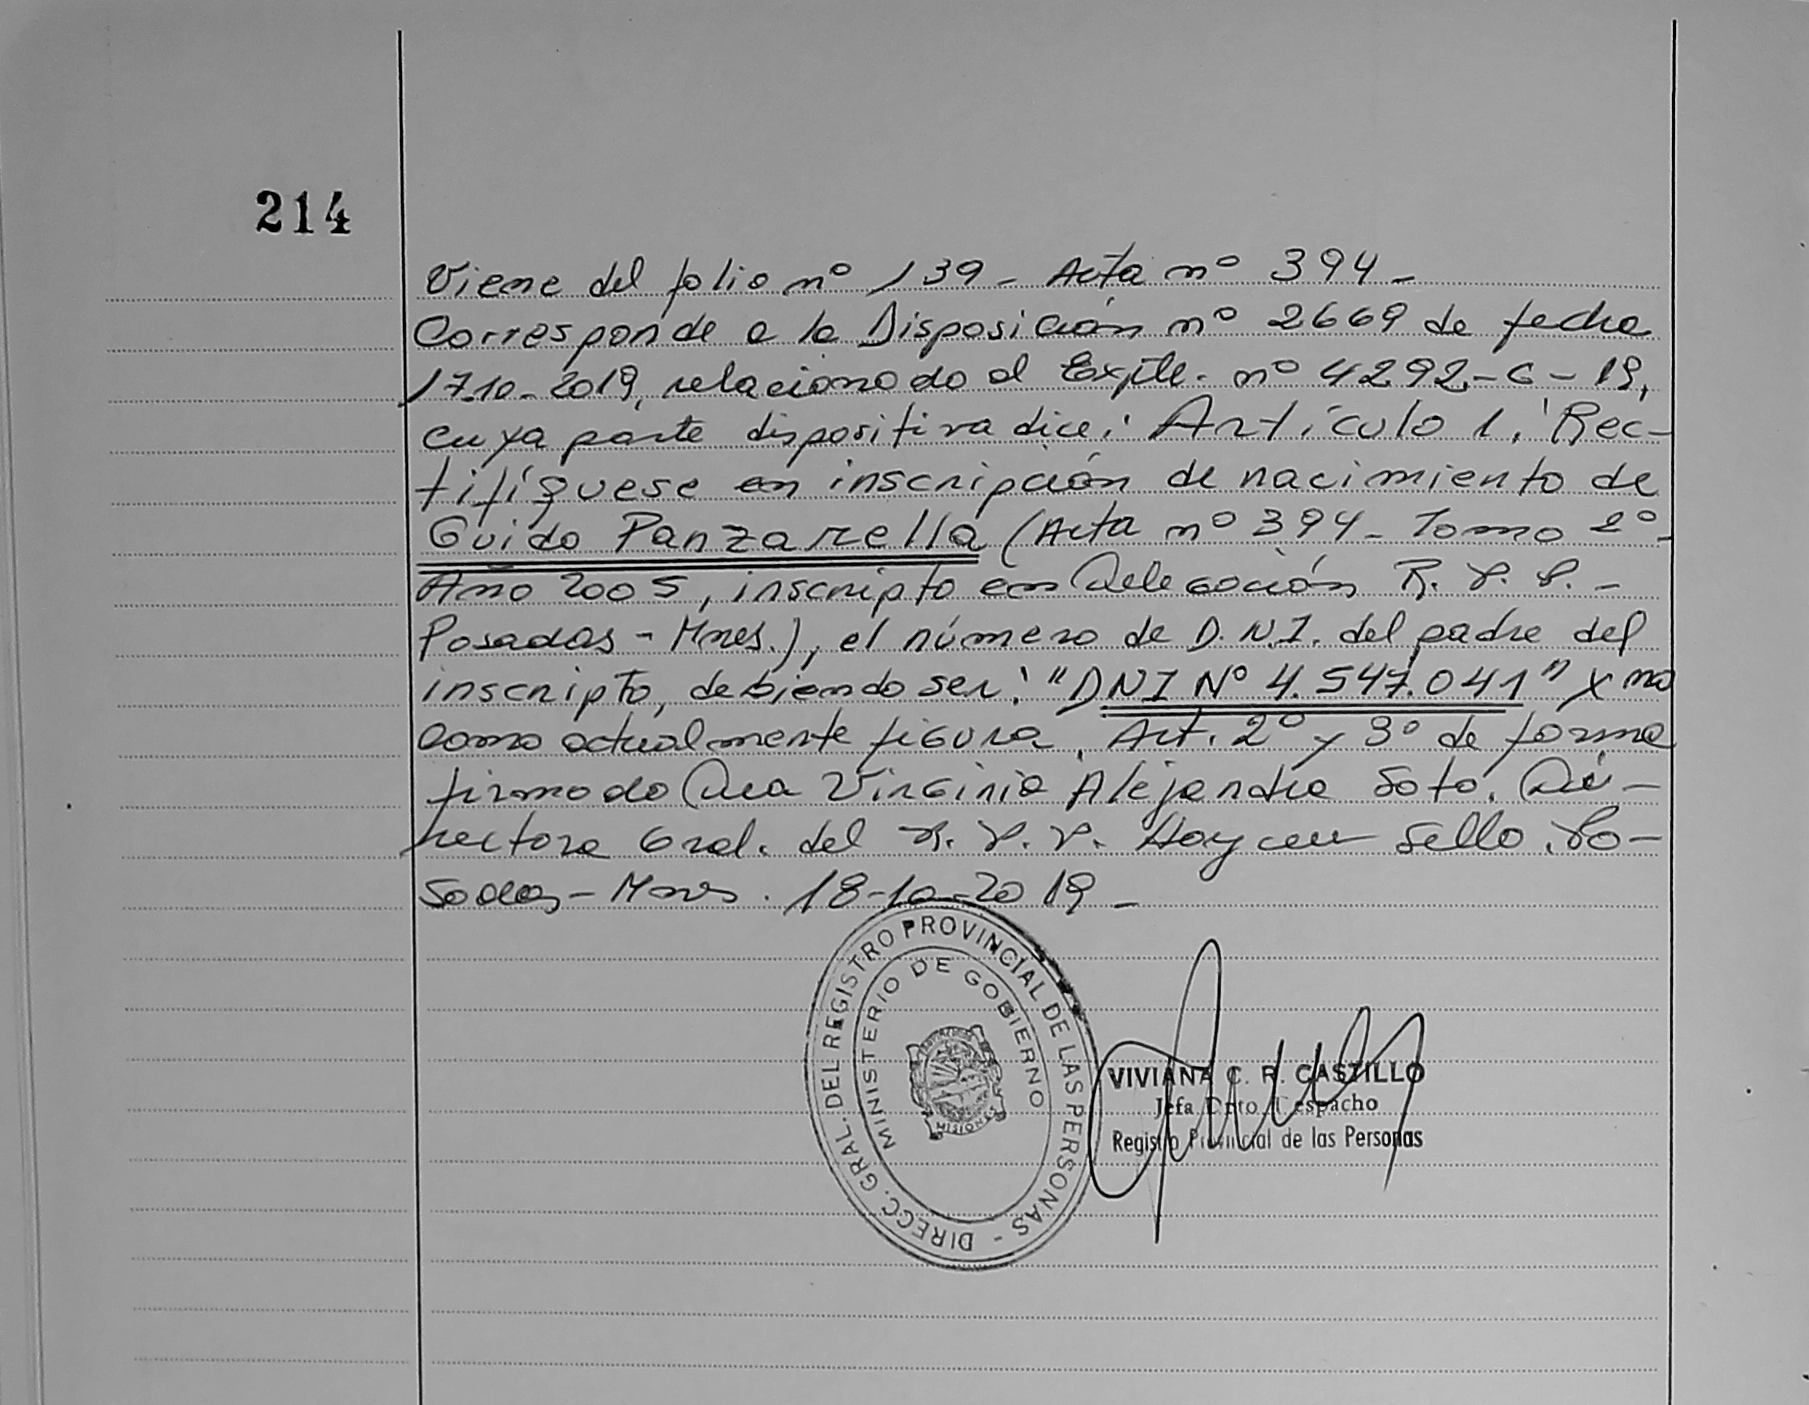 214
Viene del folio nº 139 - Acta nº 394 -
Corresponde a la Disposición nº 2669 de fecha
17-10-2019, relacionado al Expte. nº 4292-G-19,
cuya parte dispositiva dice: Artículo 1: Rec-
tifíquese en inscripción de nacimiento de
Guido Panzarella (Acta nº 394 - Tomo 2º -
Año 2005, inscripto en Delegación R. P. P. -
Posadas - Mnes.), el número de D.N.I. del padre del
inscripto, debiendo ser: "DNI Nº 4.547.041" y no
como actualmente figura. Art. 2º y 3º de forma
firmado Dra Virginia Alejandra Soto. Di-
rectora Gral. del R. P. P. Hay un sello. Po-
sadas - Mnes. 18-10-2019 -
DIRECC. GRAL. DEL REGISTRO PROVINCIAL DE LAS PERSONAS -
MINISTERIO DE GOBIERNO
MISIONES
VIVIANA C. R. CASTILLO
Jefa Dpto. Despacho
Registro Provincial de las Personas